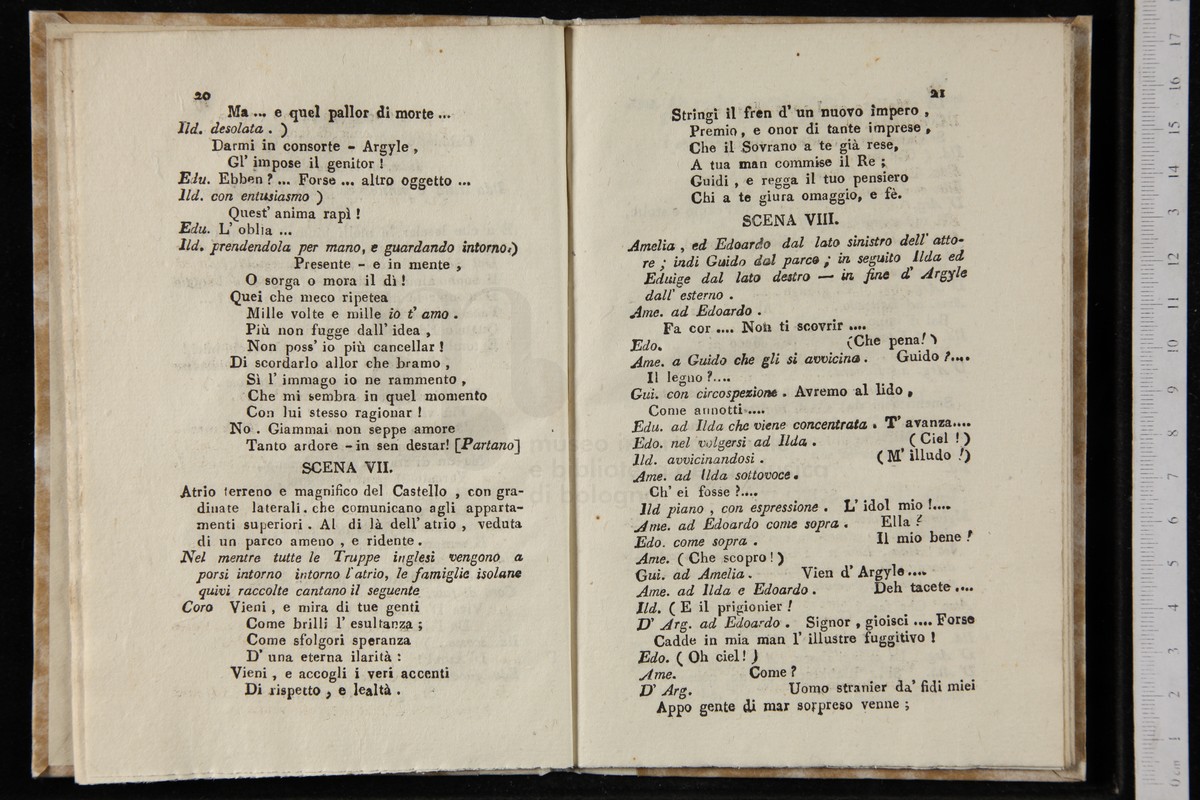 20
Ma ... e quel pallor di morte ...
Ild. desolata . )
Darmi in consorte - Argyle ,
Gl' impose il genitor !
Edu. Ebben ? ... Forse ... altro oggetto ...
Ild. con entusiasmo )
Quest' anima rapì !
Edu. L' oblia ...
Ild. prendendola per mano, e guardando intorno.)
Presente - e in mente ,
O sorga o mora il dì !
Quei che meco ripetea
Mille volte e mille io t' amo .
Più non fugge dall' idea ,
Non poss' io più cancellar !
Di scordarlo allor che bramo ,
Sì l' immago io ne rammento ,
Che mi sembra in quel momento
Con lui stesso ragionar !
No . Giammai non seppe amore
Tanto ardore - in sen destar! [Partano]
SCENA VII.
Atrio terreno e magnifico del Castello , con gra-
dinate laterali . che comunicano agli apparta-
menti superiori . Al di là dell' atrio , veduta
di un parco ameno , e ridente .
Nel mentre tutte le Truppe inglesi vengono a
porsi intorno intorno l'atrio, le famiglie isolane
quivi raccolte cantano il seguente
Coro Vieni , e mira di tue genti
Come brilli l' esultanza ;
Come sfolgori speranza
D' una eterna ilarità :
Vieni , e accogli i veri accenti
Di rispetto , e lealtà .
21
Stringi il fren d' un nuovo impero ,
Premio , e onor di tante imprese ,
Che il Sovrano a te già rese,
A tua man commise il Re ;
Guidi , e regga il tuo pensiero
Chi a te giura omaggio, e fè.
SCENA VIII.
Amelia , ed Edoardo dal lato sinistro dell' atto-
re ; indi Guido dal parco ; in seguito Ilda ed
Eduige dal lato destro — in fine d' Argyle
dall' esterno .
Ame. ad Edoardo .
Fa cor .... Non ti scovrir ....
Edo. (Che pena!)
Ame. a Guido che gli si avvicina . Guido ?....
Il legno ?....
Gui. con circospezione . Avremo al lido ,
Come annotti ....
Edu. ad Ilda che viene concentrata . T' avanza....
Edo. nel volgersi ad Ilda . ( Ciel ! )
Ild. avvicinandosi . ( M' illudo !)
Ame. ad Ilda sottovoce .
Ch' ei fosse ?....
Ild piano , con espressione . L' idol mio !....
Ame. ad Edoardo come sopra . Ella ?
Edo. come sopra . Il mio bene !
Ame. ( Che scopro ! )
Gui. ad Amelia . Vien d' Argyle ....
Ame. ad Ilda e Edoardo . Deh tacete ....
Ild. ( E il prigionier !
D' Arg. ad Edoardo . Signor , gioisci .... Forse
Cadde in mia man l' illustre fuggitivo !
Edo. ( Oh ciel ! )
Ame. Come ?
D' Arg. Uomo stranier da' fidi miei
Appo gente di mar sorpreso venne ;